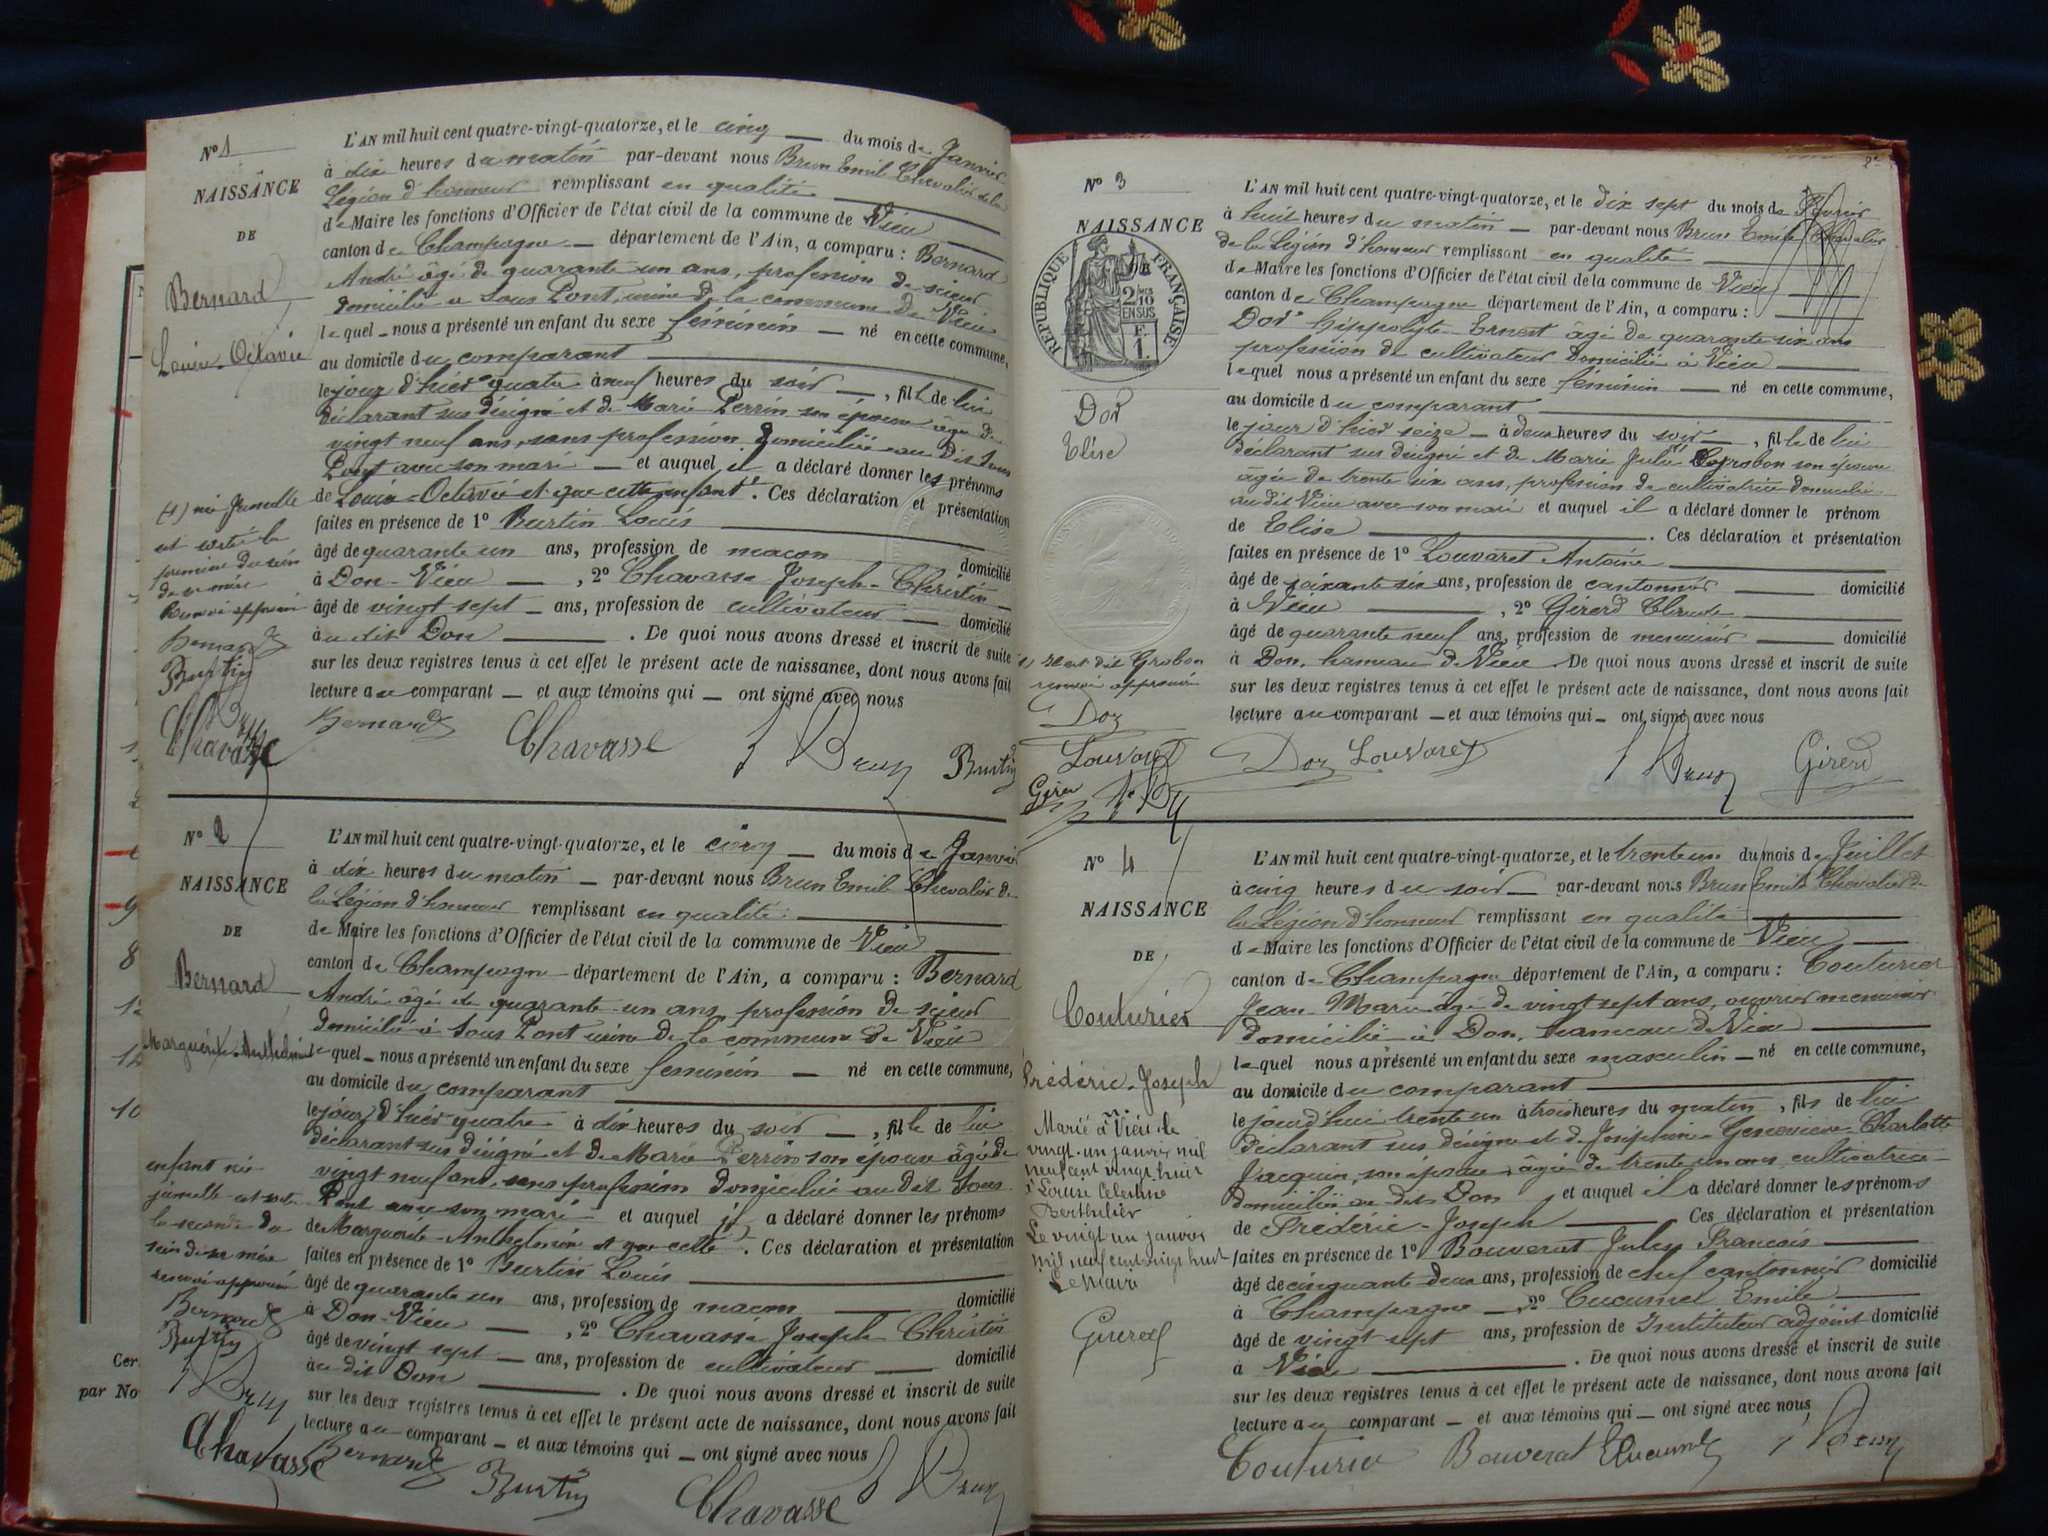 N° 1
NAISSANCE
DE
Bernard
Louise-Octavie
L'AN mil huit cent quatre-vingt-quatorze, et le cinq du mois de Janvier
à dix heures du matin par-devant nous Brun Emile Chevalier de la
Légion d'honneur remplissant en qualité
de Maire les fonctions d'Officier de l'état civil de la commune de Vieu
canton de Champagne département de l'Ain, a comparu : Bernard
André âgé de quarante un ans, profession de scieur
domicilié à Sous Pont, usine de la commune de Vieu
lequel nous a présenté un enfant du sexe féminin né en cette commune,
au domicile du comparant
le jour d'hier quatre à neuf heures du soir, fille de lui
déclarant sus désigné et de Marie Perrin son épouse âgée de
vingt neuf ans, sans profession domiciliée au dit Sous
Pont avec son mari et auquel il a déclaré donner les prénoms
de Louise-Octavie et que cette enfant. Ces déclaration et présentation
faites en présence de 1° Burtin Louis
âgé de quarante un ans, profession de maçon domicilié
à Don-Vieu, 2° Chavasse Joseph-Christin
âgé de vingt sept ans, profession de cultivateur domicilié
au dit Don. De quoi nous avons dressé et inscrit de suite
sur les deux registres tenus à cet effet le présent acte de naissance, dont nous avons fait
lecture au comparant et aux témoins qui ont signé avec nous
(1) née Jumelle
est sortie la
première du sein
de sa mère
Renvoi approuvé
Bernard
Burtin
Chavasse
Bernard Chavasse Brun Burtin
N° 2
NAISSANCE
DE
Bernard
L'AN mil huit cent quatre-vingt-quatorze, et le cinq du mois de Janvier
à dix heures du matin par-devant nous Brun Emile Chevalier de
la Légion d'honneur remplissant en qualité
de Maire les fonctions d'Officier de l'état civil de la commune de Vieu
canton de Champagne département de l'Ain, a comparu : Bernard
André âgé de quarante un ans, profession de scieur
domicilié à Sous Pont usine de la commune de Vieu
lequel nous a présenté un enfant du sexe féminin né en cette commune,
au domicile du comparant
le jour d'hier quatre à dix heures du soir, fille de lui
déclarant sus désigné et de Marie Perrin son épouse âgée de
vingt neuf ans, sans profession domiciliée au dit Sous
Pont avec son mari et auquel il a déclaré donner les prénoms
de Marguerite et que cette. Ces déclaration et présentation
faites en présence de 1° Burtin Louis
âgé de quarante un ans, profession de maçon domicilié
à Don-Vieu, 2° Chavasse Joseph Christin
âgé de vingt sept ans, profession de cultivateur domicilié
au dit Don. De quoi nous avons dressé et inscrit de suite
sur les deux registres tenus à cet effet le présent acte de naissance, dont nous avons fait
lecture au comparant et aux témoins qui ont signé avec nous
enfant née
jumelle est sortie
la seconde du
sein de sa mère
renvoi approuvé
Bernard
Burtin
Brun
Chavasse Bernard Burtin Chavasse Brun
9
8
10
Cer
par No
2e
N° 3
NAISSANCE
RÉPUBLIQUE FRANÇAISE
2/10
EN SUS
F.
1.
Dor
Elise
L'AN mil huit cent quatre-vingt-quatorze, et le dix sept du mois de
à huit heures du matin par-devant nous Brun Emile Chevalier
de la Légion d'honneur remplissant en qualité
de Maire les fonctions d'Officier de l'état civil de la commune de Vieu
canton de Champagne département de l'Ain, a comparu :
Dor hippolyte Ernest âgé de quarante six ans
profession de cultivateur domicilié à Vieu
lequel nous a présenté un enfant du sexe féminin né en cette commune,
au domicile du comparant
le jour d'hier seize à deux heures du soir, fille de lui
déclarant sus désigné et de Marie Julie son épouse
âgée de trente six ans, profession de cultivatrice domiciliée
au dit Vieu avec son mari et auquel il a déclaré donner le prénom
de Elise. Ces déclaration et présentation
faites en présence de 1° Louvaret Antoine
âgé de soixante six ans, profession de cantonnier domicilié
à Vieu, 2° Girerd Claude
âgé de quarante neuf ans, profession de menuisier domicilié
à Don, hameau de Vieu. De quoi nous avons dressé et inscrit de suite
sur les deux registres tenus à cet effet le présent acte de naissance, dont nous avons fait
lecture au comparant et aux témoins qui ont signé avec nous
Grobon
renvoi approuvé
Dor
Louvaret
Girerd
Dor Louvaret Brun Girerd
N° 4
NAISSANCE
DE
Couturier
Frédéric-Joseph
L'AN mil huit cent quatre-vingt-quatorze, et le trente un du mois de Juillet
à cinq heures du soir par-devant nous Brun Emile Chevalier de
la Légion d'honneur remplissant en qualité
de Maire les fonctions d'Officier de l'état civil de la commune de Vieu
canton de Champagne département de l'Ain, a comparu : Couturier
Jean Marie âgé de vingt sept ans, ouvrier menuisier
domicilié à Don, hameau de Vieu
lequel nous a présenté un enfant du sexe masculin né en cette commune,
au domicile du comparant
le jourd'hui trente un à trois heures du matin, fils de lui
déclarant sus désigné et de Joséphine-Geneviève-Charlotte
Jacquin, son épouse, âgée de trente un ans, cultivatrice
domiciliée au dit Don, et auquel il a déclaré donner les prénoms
de Frédéric-Joseph. Ces déclaration et présentation
faites en présence de 1° Bouverat Jules François
âgé de cinquante deux ans, profession de chef cantonnier domicilié
à Champagne, 2° Cucumel Emile
âgé de vingt sept ans, profession de Instituteur adjoint domicilié
à Vieu. De quoi nous avons dressé et inscrit de suite
sur les deux registres tenus à cet effet le présent acte de naissance, dont nous avons fait
lecture au comparant et aux témoins qui ont signé avec nous,
Marié à Vieu le
vingt-un janvier mil
neuf cent vingt huit
à Louise Célestine
Berthelier
Le vingt un janvier
mil neuf cent vingt huit
Le Maire
Girerd
Couturier Bouverat Cucumel Brun